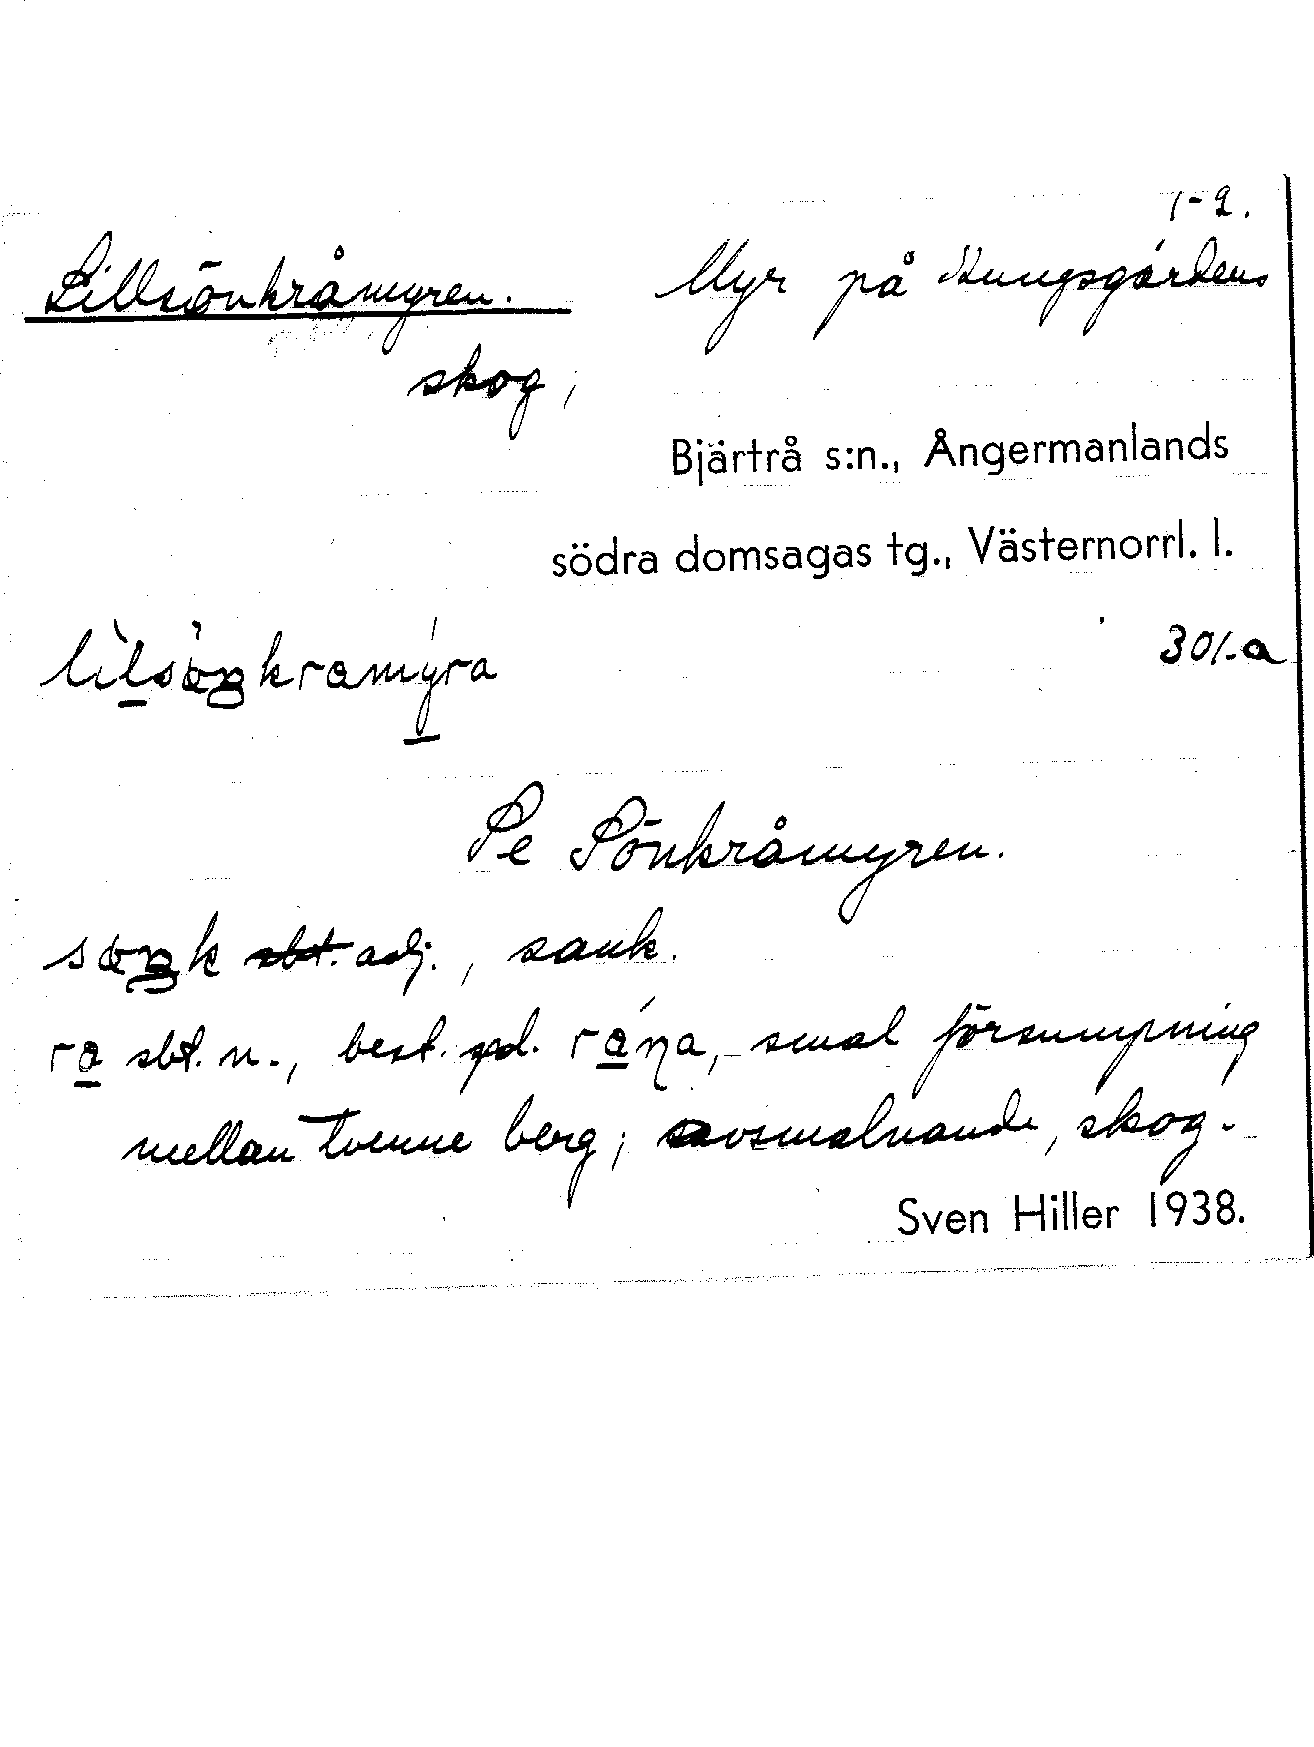 1-2.
Lillsönkråmyren. Myr på Kungsgårdens
skog,
Bjärtrå s:n., Ångermanlands
södra domsagas tg., Västernorrl. l.
301.a
Se Sönkråmyren.
sbt. adj., sank.
sbt. n., best. smal försumpning
mellan tvenne berg; avsmalnande, skog-
Sven Hiller 1938.